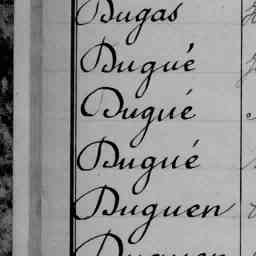 Dugas
Dugué
Dugué
Dugué
Duguen
Duguen